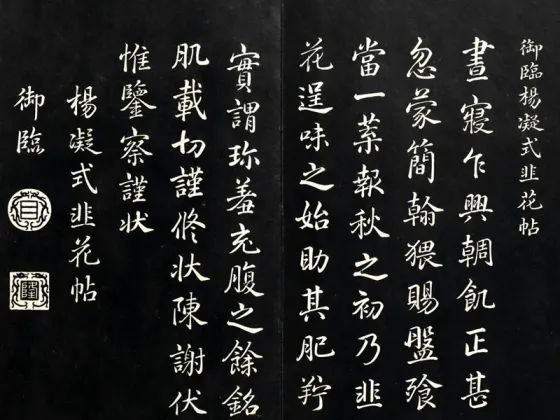 御臨楊凝式韭花帖
晝寢乍興輖飢正甚
忽蒙簡翰猥賜盤飧
當一葉報秋之初乃韭
花逞味之始助其肥羜
實謂珍羞充腹之餘銘
肌載切謹修狀陳謝伏
惟鑒察謹狀
楊凝式韭花帖
御臨